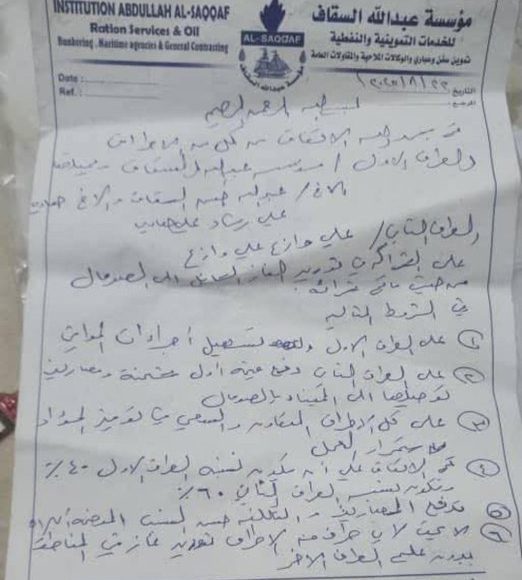 INSTITUTION ABDULLAH AL-SAQQAF
Ration Services & Oil
Bunkering - Maritime agencies & General Contracting
AL-SAQQAF
مؤسسة عبدالله السقاف
للخدمات التموينية والنفطية
تموين سفن وصواري والوكالات الملاحية والمقاولات العامة
Date :
Ref. :
التاريخ: ٢٠٢٥/٨/٢٣
المرجع:
بسم الله الرحمن الرحيم
تم بعون الله الاتفاق من كل من الاطراف
الطرف الاول / مؤسسة عبدالله السقاف
الاخ / عبدالله حسن السقاف والاخ
علي رشاد علي
الطرف الثاني / علي وازع علي وازع
على الشراكة في توريد الغاز السائل الى الصومال
من حيث ما تم شرائه.
في الشروط التالية
① على الطرف الاول تسهيل اجراءات الموانئ
② على الطرف الثاني دفع قيمة أول شحنة ومصاريف
توصيلها الى الميناء بالصومال
③ على كل الاطراف التعاون والسعي
استمرار العمل
④ تم الاتفاق على أن تكون نسبة الطرف الاول ٤٠٪
وتكون نسبة الطرف الثاني ٦٠٪
⑤ تدفع المصاريف و التكلفة حسب النسب
⑥ لا يحق لاي طرف من الاطراف توريد غاز في المناطق
بدون علم الطرف الاخر